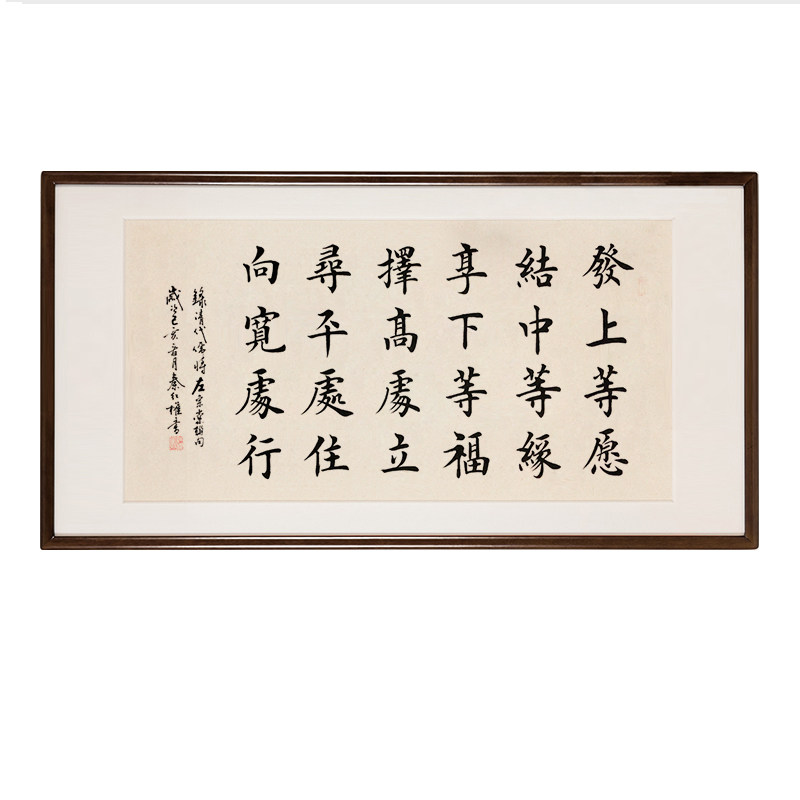 發上等愿
結中等緣
享下等福
擇高處立
尋平處住
向寬處行
錄清代儒將左宗棠題句
歲次己亥春月秦紅權書